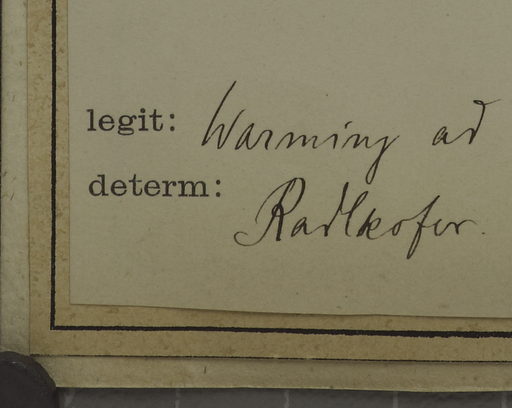 legit: Warming ad
determ:
Radlkofer.